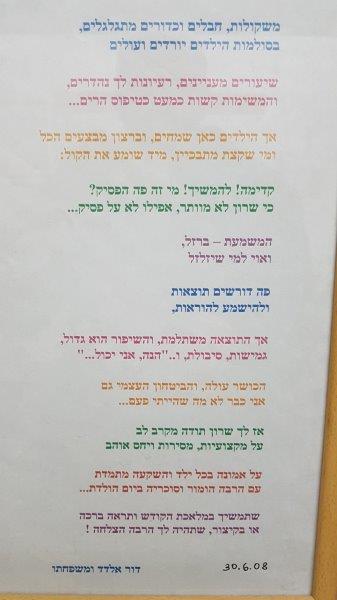 משקולות, חבלים וכדורים מתגלגלים,
בסולמות הילדים יורדים ועולים
שיעורים מעניינים, רעיונות לך נהדרים,
והמשימות קשות כמעט כטיפוס הרים...
אך הילדים כאן שמחים, וברצון מבצעים הכל
ומי שקצת מתבכיין, מיד שומע את הקול:
קדימה! להמשיך! מי זה פה הפסיק?
כי שרון לא מוותר, אפילו לא על פסיק...
המשמעת – ברזל,
ואוי למי שיזלזל
פה דורשים תוצאות
ולהישמע להוראות,
אך התוצאה משתלמת, והשיפור הוא גדול,
גמישות, סיבולת, ו.."הנה, אני יכול..."
הכושר עולה, והביטחון העצמי גם
אני כבר לא מה שהייתי פעם...
אז לך שרון תודה מקרב לב
על מקצועיות, מסירות ויחס אוהב
על אמונה בכל ילד והשקעה מתמדת
עם הרבה הומור וסוכריה ביום הולדת...
שתמשיך במלאכת הקודש ותראה ברכה
או בקיצור, שתהיה לך הרבה הצלחה !
דור אלדד ומשפחתו
30.6.08